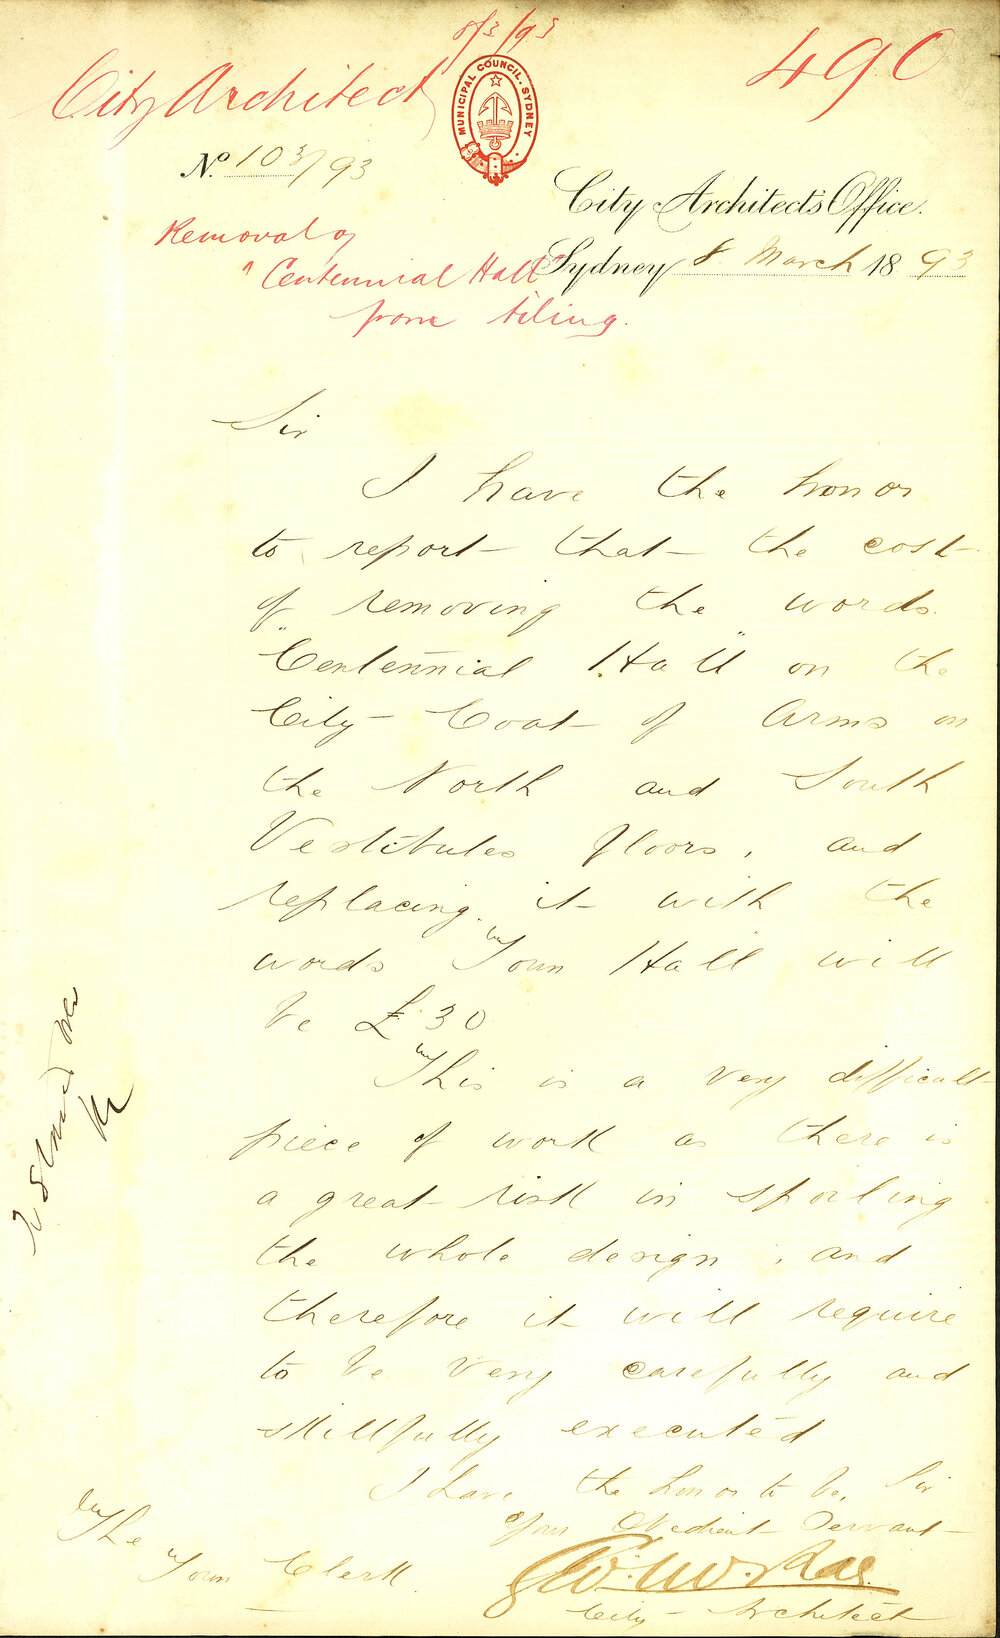 8/3/93
City Architect
490
MUNICIPAL COUNCIL. SYDNEY
No. 103/93
City Architect's Office.
Removal of
"Centennial Hall"
from tiling.
Sydney 8 March 1893
Sir
I have the honor
to report that the cost
of removing the words
"Centennial Hall" on the
City Coat of Arms on
the North and South
Vestibules floors, and
replacing it with the
words Town Hall will
be £30
This is a very difficult
piece of work as there is
a great risk in spoiling
the whole design, and
therefore it will require
to be very carefully and
skillfully executed
I have the honor to be, Sir
Your Obedient Servant
City Architect
The
Town Clerk